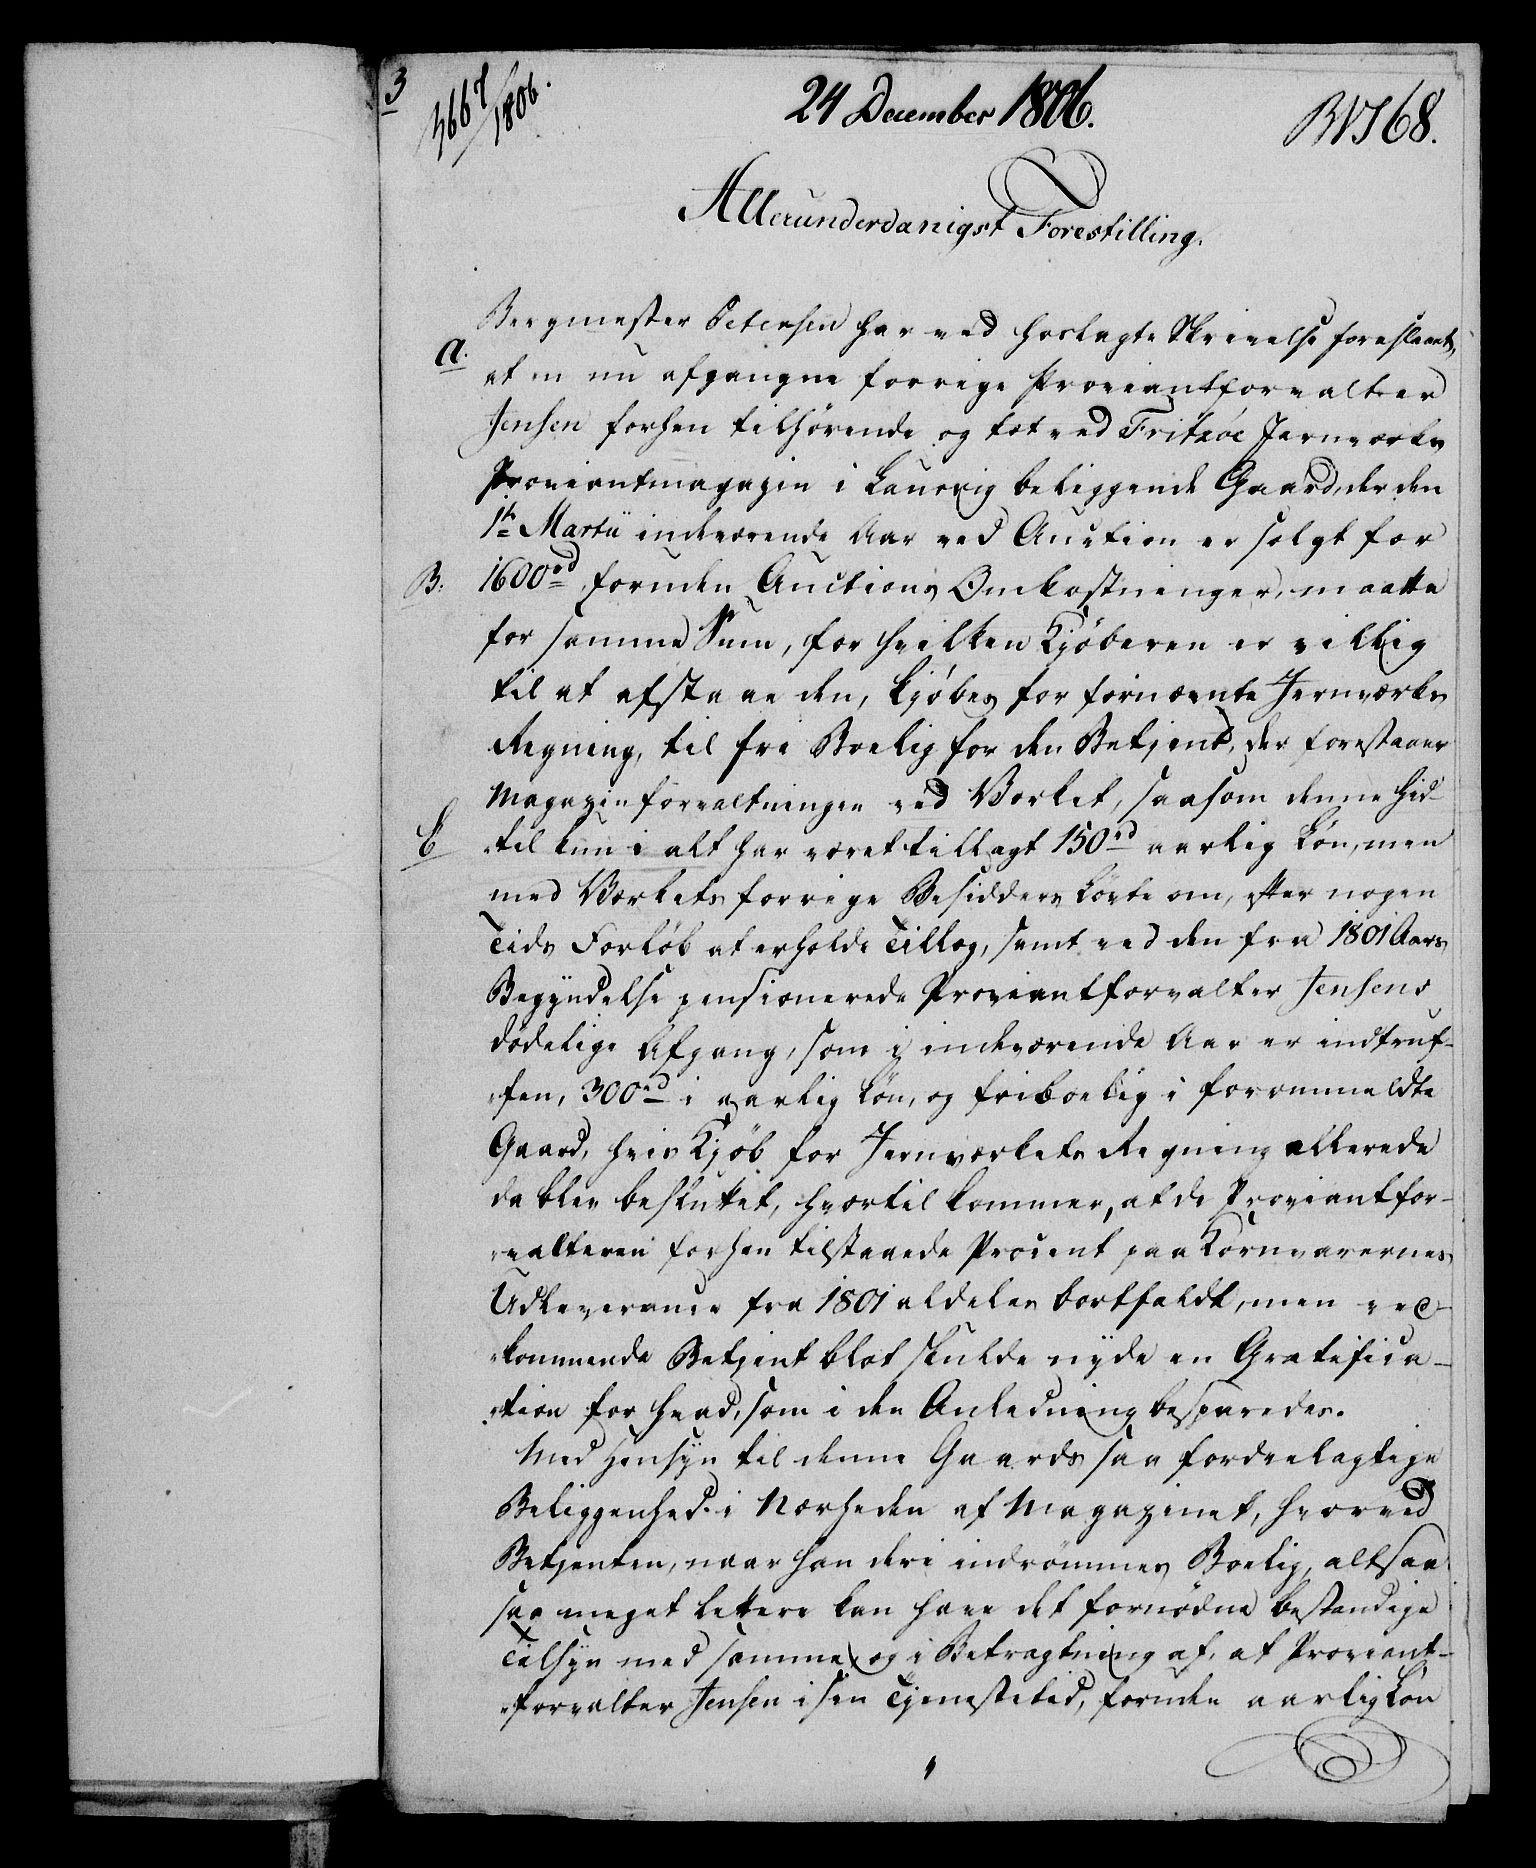 3
3667/1806.
24 December 1806.
RVJ 68.
Allerunderdanigst Forestilling.
Bergmester Petersen har ved hoslagte Skrivelse foreslaaet,
a.
at en nu afgangne forrige Proviantforvalter
Jensen forhen tilhørende og tæt ved Fritzöe Jernværks
Proviantmagazin i Laurvig beliggende Gaard, der den
1te Martii indeværende Aar ved Auction er solgt for
B.
1600rd foruden Auctions Omkostninger, maatte
for samme Sum, for hvilken Kjøberen er villig
til at afstaae den, kjøbes for fornævnte Jernværks
Regning, til frie Boelig for den Betjent, der forestaaer
Magazinforvaltningen ved Værket, saasom denne hid-
C
til kun i alt har været tillagt 150rd aarlig Løn, men
med Værkets forrige Besidders Løvte om, efter nogen
Tids Forløb at erholde Tillæg, samt ved den fra 1801 Aars
Begyndelse pensionerede Proviantforvalter Jensens
dødelige Afgang, som i indeværende Aar er indtruf-
fen, 300rd i aarlig Løn, og frieboelig i forommeldte
Gaard, hvis Kjøb for Jernværkets Regning allerede
da blev besluttet, hvortil kommer, at de Proviantfor-
valteren forhen tilstaaede Procent paa Kornvarernes
Udleverance fra 1801 aldeles bortfaldt, men ved-
kommende Betjent blot skulde nyde en Gratifica-
tion for hvad, som i den Anledning besparedes.
Med Hensyn til denne Gaards saa fordeelagtige
Beliggenhed i Nærheden af Magazinet, hvorved
Betjenten, naar han deri indrømmes Boelig, altsaa
saa meget lettere kan have det fornødne bestandige
Tilsyn med samme, og i Betragtning af, at Proviant-
forvalter Jensen i sin Tjenestetid, foruden aarlig Løn